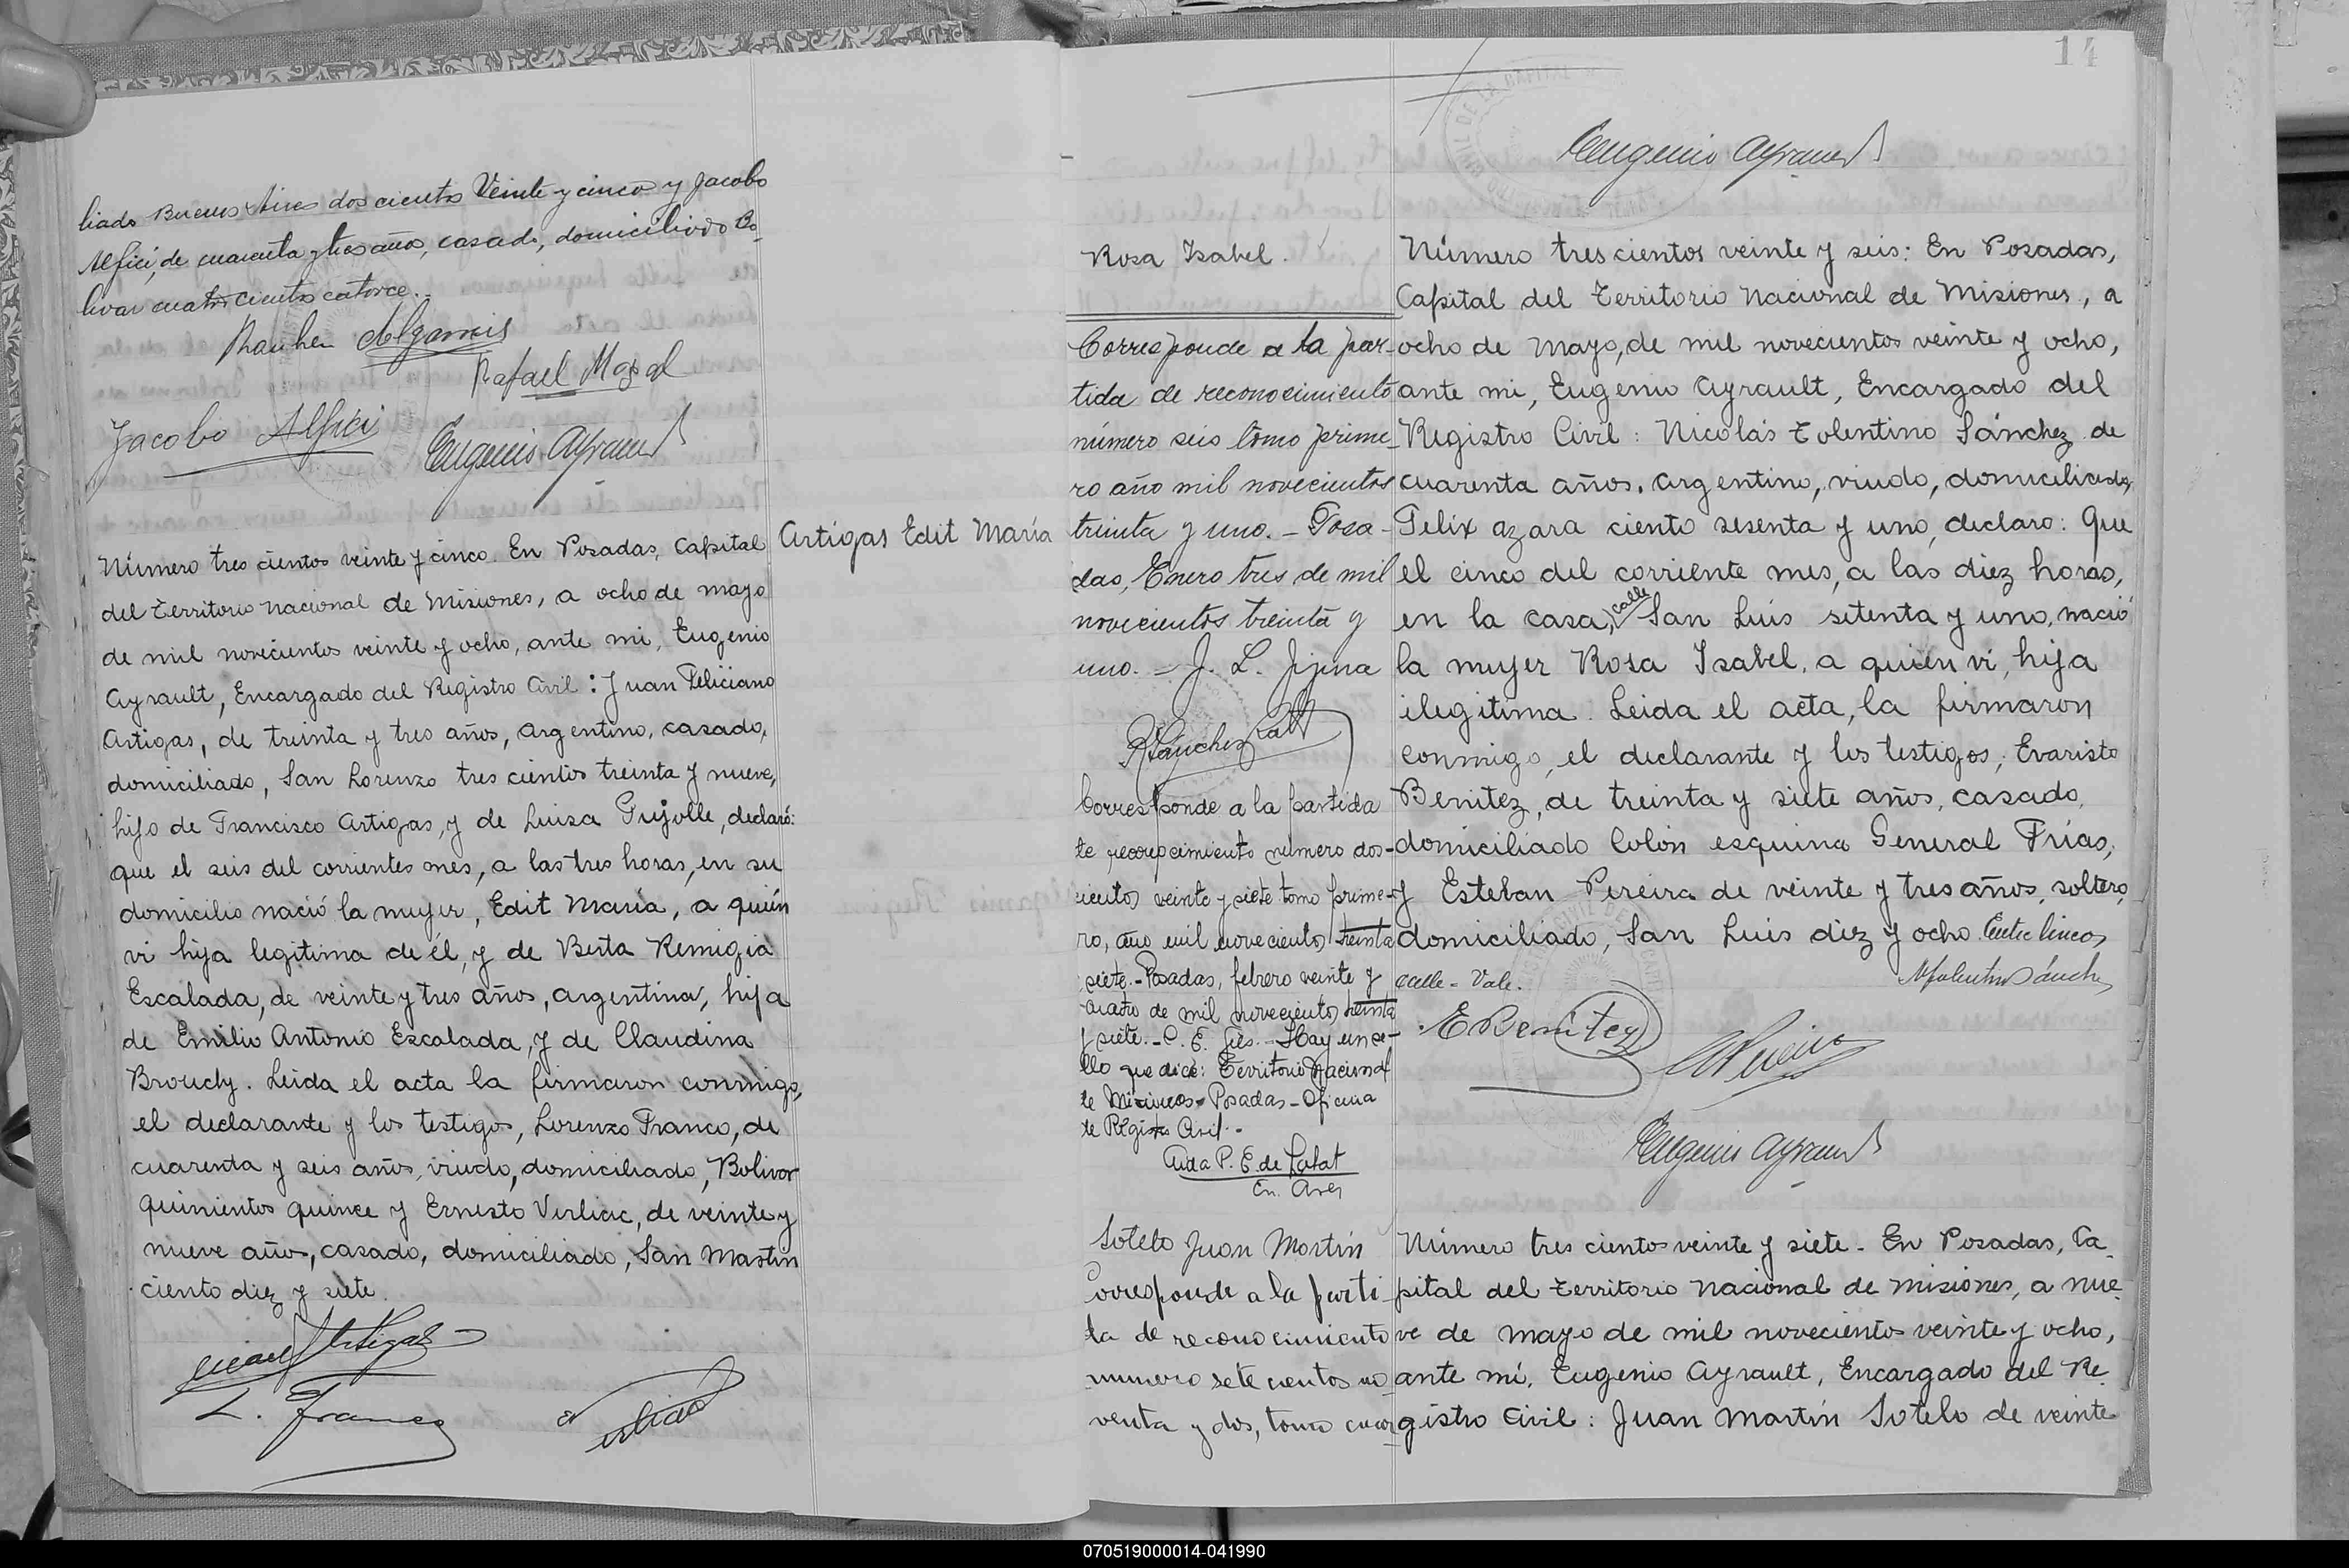 liado Buenos Aires dos cientos Veinte y cinco y Jacobo
Alfici, de cuarenta y tres años, casado, domiciliado Bo-
livar cuatro cientos catorce.
Rafael
Jacobo Alfici
Eugenio Ayrault
Artigas Edit María
Número tres cientos veinte y cinco. En Posadas, Capital
del Territorio Nacional de Misiones, a ocho de mayo
de mil novecientos veinte y ocho, ante mi, Eugenio
Ayrault, Encargado del Registro Civil: Juan Feliciano
Artigas, de treinta y tres años, argentino, casado,
domiciliado, San Lorenzo tres cientos treinta y nueve,
hijo de Francisco Artigas, y de Luisa Pujolle, declaró:
que el seis del corrientes mes, a las tres horas, en su
domicilio nació la mujer, Edit María, a quién
vi hija legitima de él, y de Berta Remigia
Escalada, de veinte y tres años, argentina, hija
de Emilio Antonio Escalada, y de Claudina
Brouchy. Leida el acta la firmaron conmigo,
el declarante y los testigos, Lorenzo Franco, de
cuarenta y seis años, viudo, domiciliado, Bolivar
quinientos quince y Ernesto Verlicic, de veinte y
nueve años, casado, domiciliado, San Martin
ciento diez y siete.
Artigas
L. Franco
14
Eugenio Ayrault
Rosa Isabel.
Corresponde a la par-
tida de reconocimiento
número seis tomo prime-
ro año mil novecientos
treinta y uno. - Posa-
das, Enero tres de mil
novecientos treinta y
uno. = J. L.
Corresponde a la partida
de reconocimiento número dos-
cientos veinte y siete tomo prime-
ro, año mil novecientos treinta
siete. - Posadas, febrero veinte y
cuatro de mil novecientos treinta
y siete. - C. E. - Hay un se-
llo que dice: Territorio Nacional
de Misiones - Posadas - Oficina
de Registro Civil. -
Aida P. E. de
Número tres cientos veinte y seis: En Posadas,
Capital del Territorio Nacional de Misiones, a
ocho de Mayo, de mil novecientos veinte y ocho,
ante mi, Eugenio Ayrault, Encargado del
Registro Civil: Nicolás Tolentino Sánchez de
cuarenta años, argentino, viudo, domiciliado,
Felix azara ciento sesenta y uno, declaro: Que
el cinco del corriente mes, a las diez horas,
en la casa, calle San Luis setenta y uno, nació
la mujer Rosa Isabel, a quién vi, hija
ilegitima. Leida el acta, la firmaron
conmigo, el declarante y los testigos, Evaristo
Benitez, de treinta y siete años, casado,
domiciliado Colón esquina General Frias,
y Esteban Pereira de veinte y tres años, soltero,
domiciliado, San Luis diez y ocho. Entre lineas
calle - Vale.
E Benitez
Eugenio Ayrault
Sotelo Juan Martín
Corresponde a la parti-
da de reconocimiento
numero sete cientos no
venta y dos, tomo cuar
Número tres cientos veinte y siete - En Posadas, Ca-
pital del Territorio Nacional de Misiones, a nue-
ve de mayo de mil novecientos veinte y ocho,
ante mí, Eugenio Ayrault, Encargado del Re-
gistro Civil: Juan Martín Sotelo de veinte
070519000014-041990